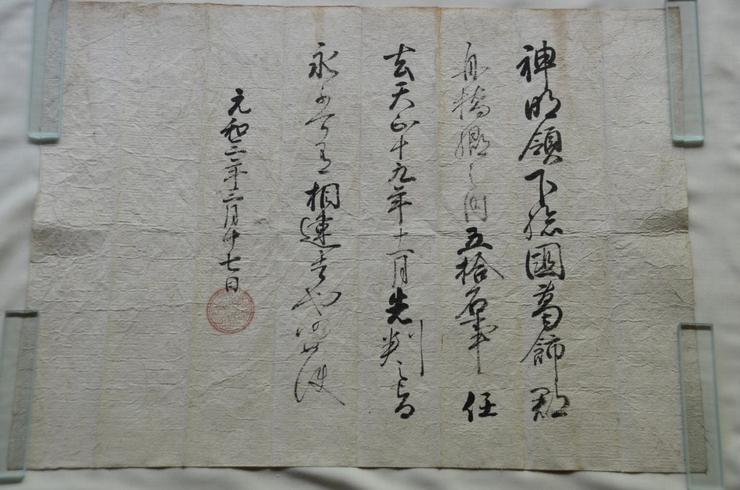 神明領下総國葛飾郡
舟橋郷之内五拾石事任
去天正十九年十一月先判之旨
永不可有相違者也仍如件
元和三年三月十七日